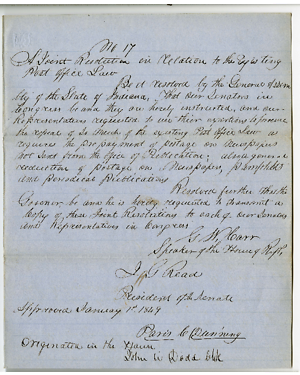 No 17
A Joint Resolution in relation to the Existing
Post Office Law
Be it resolved by the General Assem
bly of the State of Indiana, That our Senators in
Congress be and they are hereby instructed, and our
Representatives requested to use their exertions to procure
the repeal of so much of the existing Post Office Law as
requires the prepayment of postage on Newspapers
not sent from the Office of Publication; also a general
reduction of postage on Newspapers, Pamphlets
and Periodical Publications.
Resolved further that the
Governor be and he is hereby requested to transmit a
Copy of these Joint Resolutions to each of our Senators
and Representatives in Congress
G. W. Carr
Speaker of the House of Reps.
Read
President of the Senate
Approved January 1st 1849
Paris C Dunning
Originated in the House
John W Dodd Clk